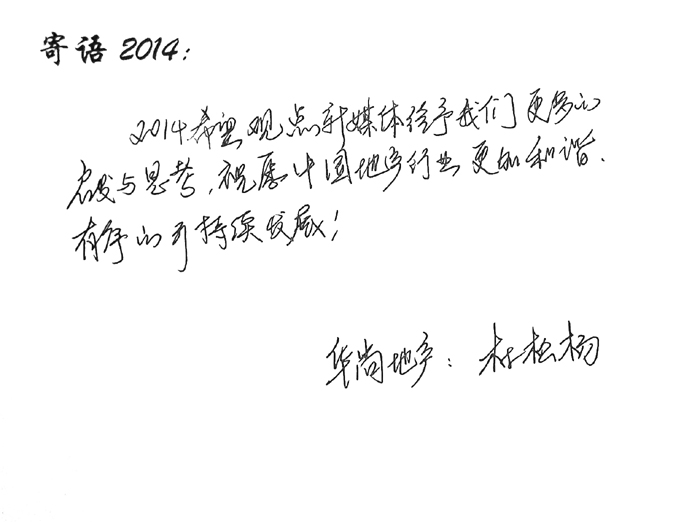 寄语 2014:
2014希望观点新媒体给予我们更多的
启发与思考,祝愿中国地产行业更加和谐、
有序的可持续发展!
华尚地产: 林松杨